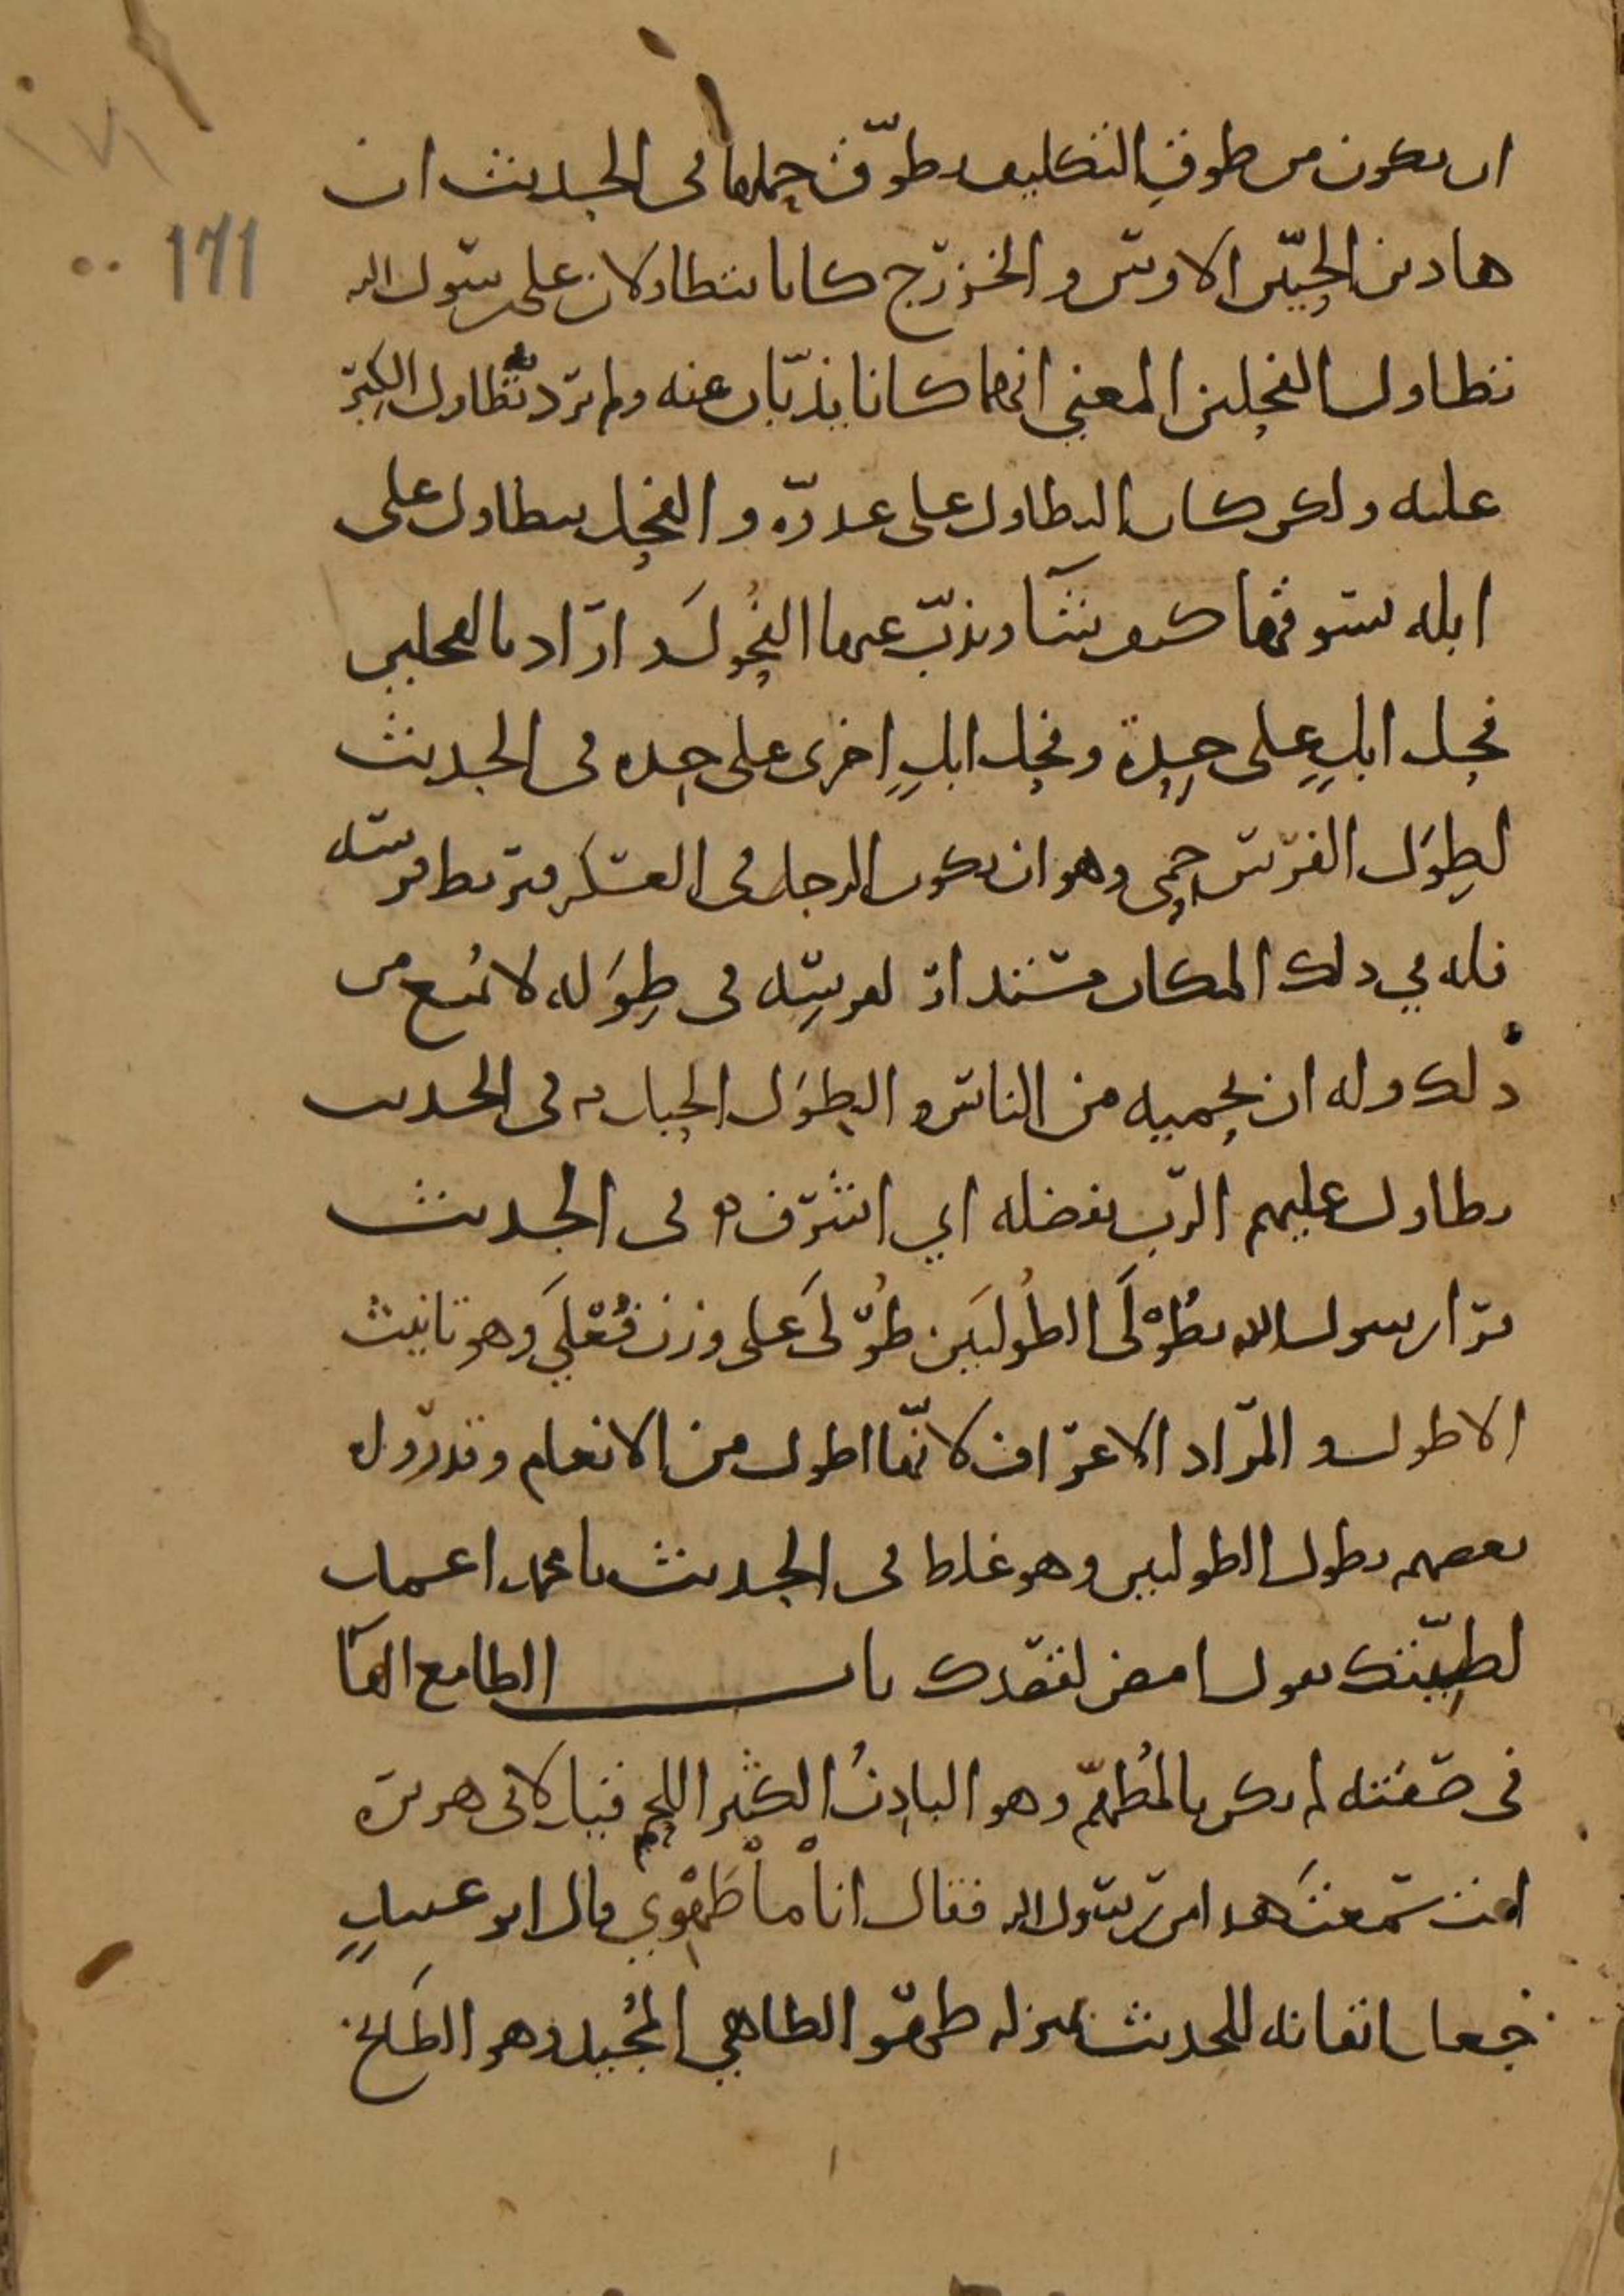 ١٧١
171
ان يكون من طوق التكليف وطوّق حملها في الحديث ان
هاذين الحيّين الاوس والخزرج كانا يتطاولان على رسول الله
تطاول الفحلين المعنى انهما كانا يذبّان عنه ولم يرد تطاول الكبر
عليه ولكن كان التطاول على عدوّه والفحل يتطاول على
ابله يسوقها كيف يشآ ويذبّ عنها الفُحولَ وارَاد بالفحلين
فحل ابلٍ على حِدة وفحل ابلٍ اخرى على حِده في الحديث
لطِوَل الفرس حمى وهو ان يكون الرجل في العسكر فيربط فرسه
فله في ذلك المكان مستدار لفرسِه في طِوَله لا يُمنع من
ذلك وله ان يحميه من الناس والطِوَل الحبل في الحديث
تطاول عليهم الرب بفضله اي اشرف في الحديث
قرا رسول الله بطُوْلَى الطُولَيَين طُوْلَى على وزن فُعْلَى وهو تانيث
الاطول والمراد الاعراف لانها اطول من الانعام وقد روله
بعضهم بطول الطوليين وهو غلط في الحديث يا محمد اعمد
لطِيّتك يقول امض لقصدك باب الطامع الهآ
في صفته لم يكن بالمُطهّم وهو البادِنُ الكثير اللحم قيل لابي هريرة
انت سمعتَ هذا من رسول الله فقال انا ماْ طَهْوِي قال ابو عبيدٍ
جعل اتقانه للحديث بمنزله طهو الطاهي المُجيد وهو الطابخ